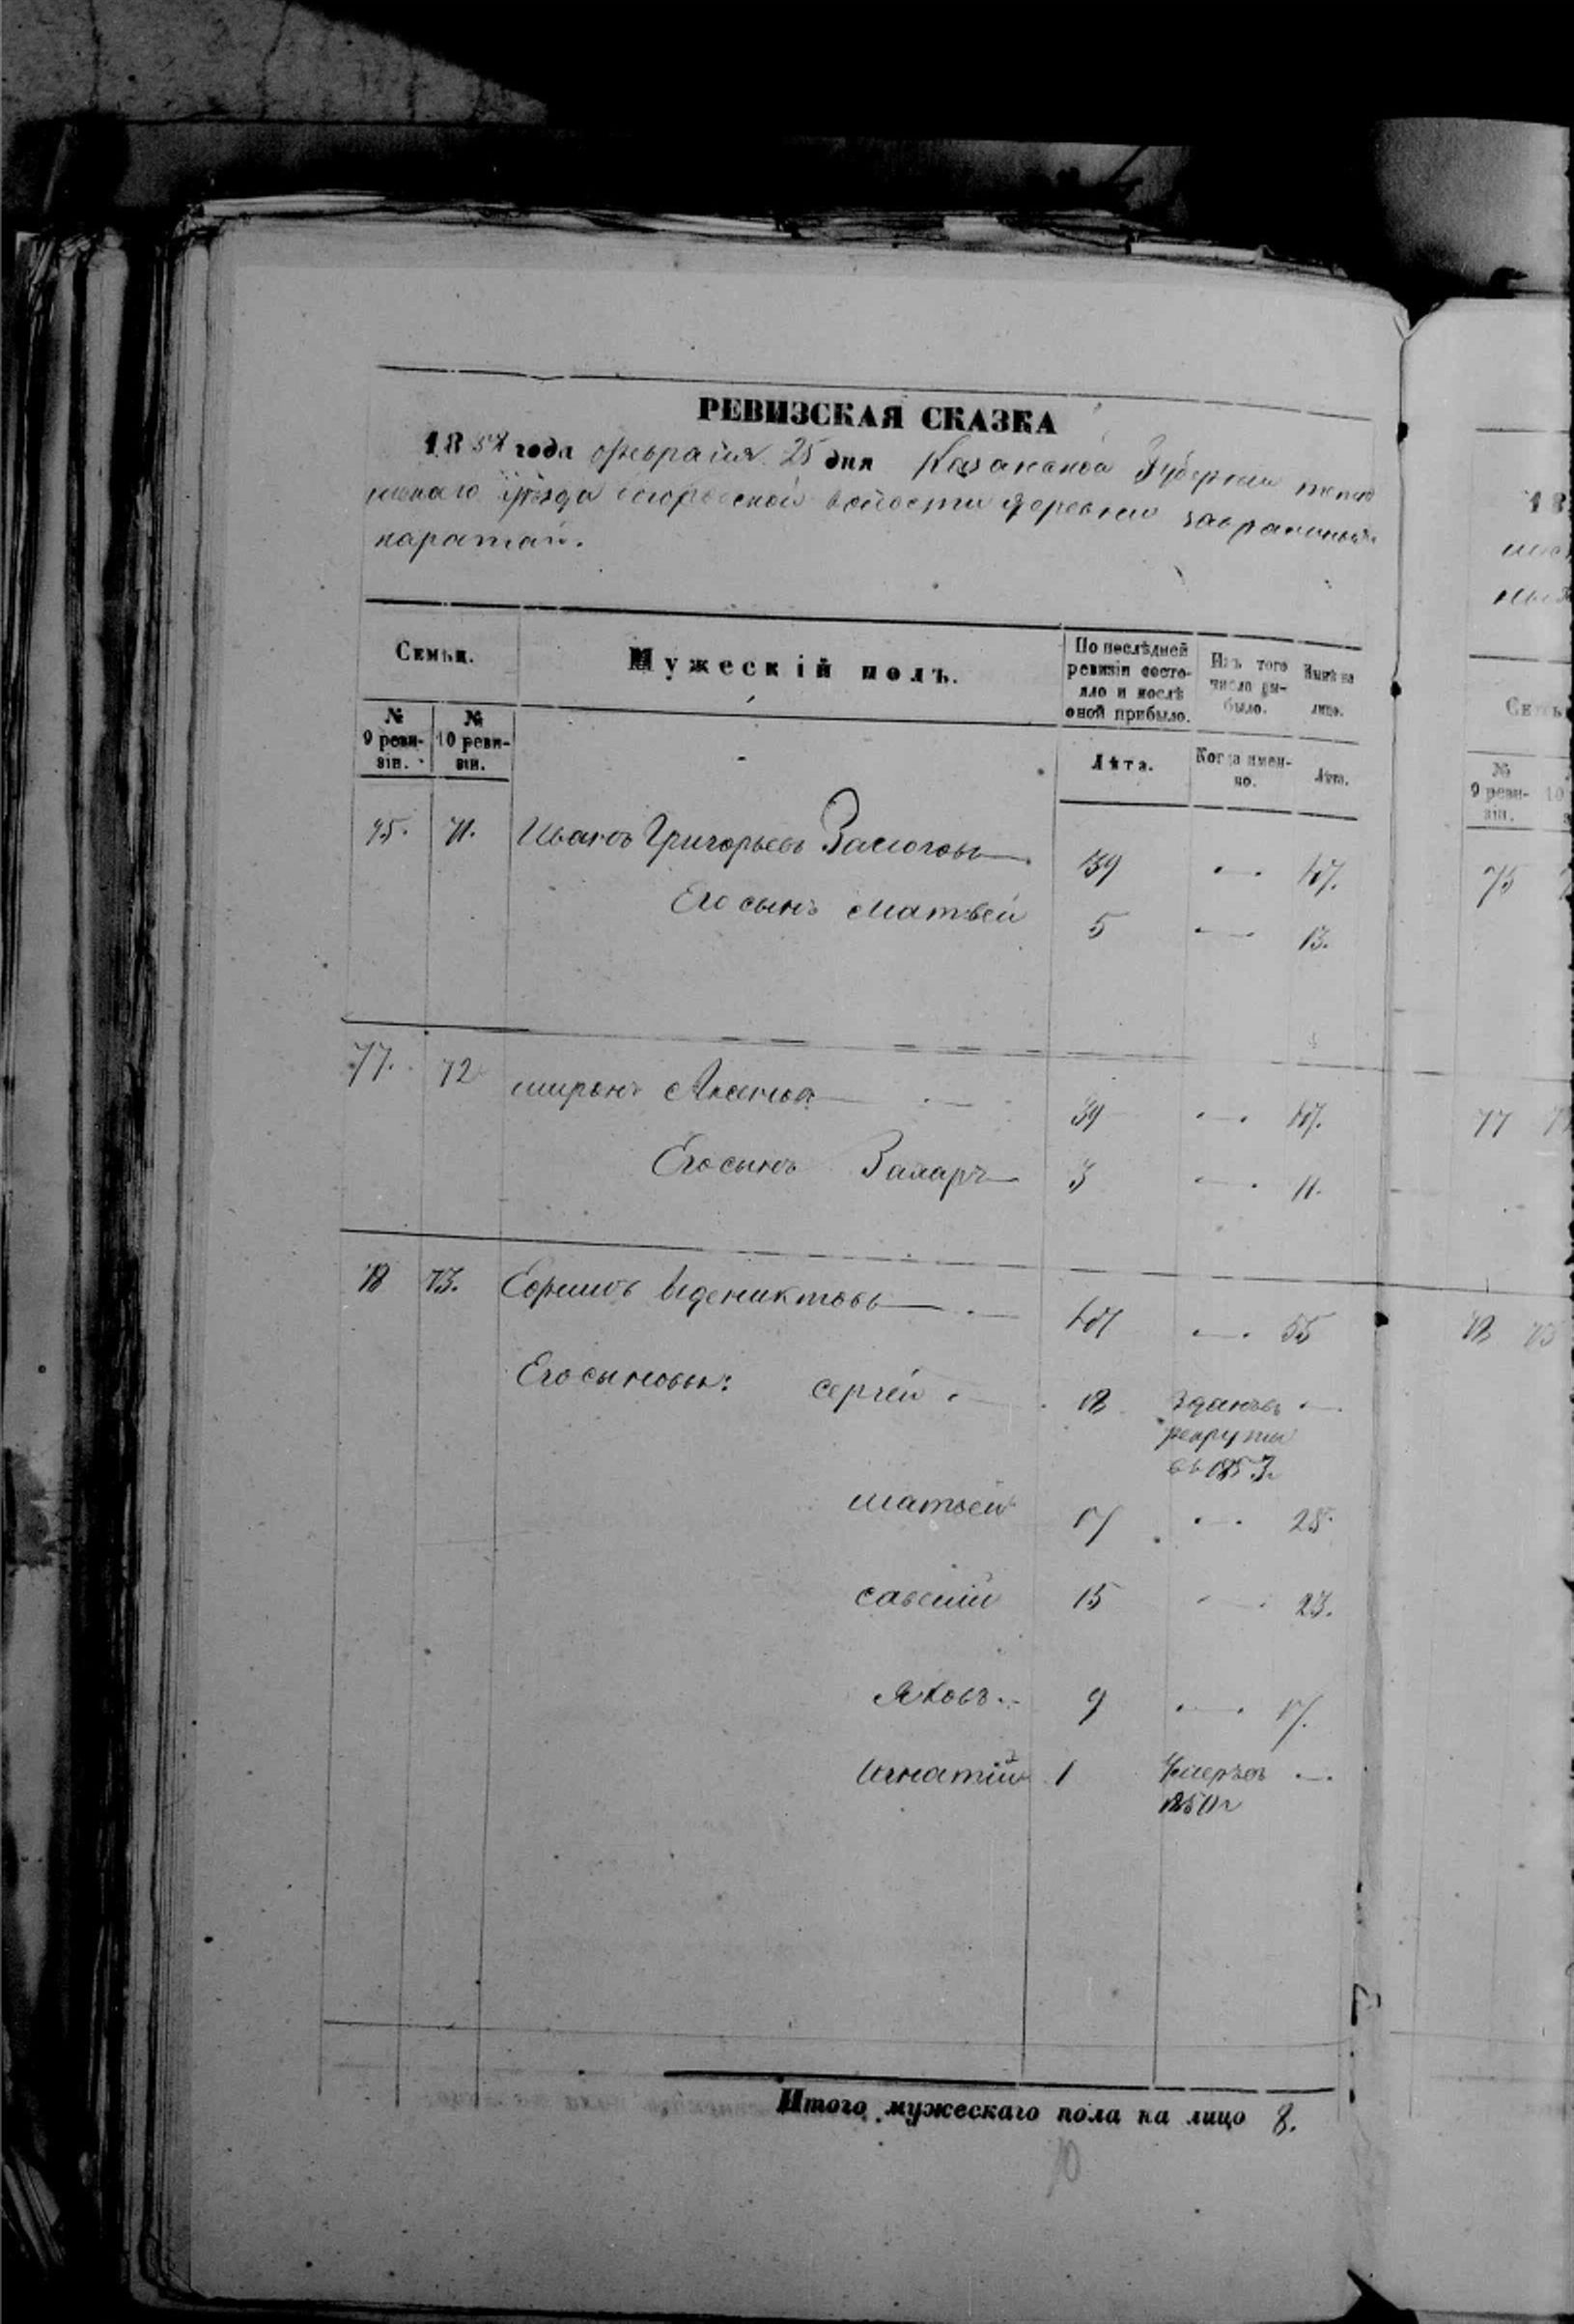 РЕВИЗСКАЯ СКАЗКА
1858 года февраля 25 дня Казанской Губернии тетю
шскаго уѣзда волости деревни
каратай.
Семьи.
Мужескій полъ.
По послѣдней ревизіи состояло и послѣ оной прибыло.
Изъ того число выбыло.
Нынѣ на лицо.
№ 9 ревизіи.
№ 10 ревизіи.
Лѣта.
Когда именно.
Лѣта.
75. 71. Иванъ Григорьевъ 39 — 47.
Его сынъ Матвей 5 — 13.
77. 72 миронъ 39 — 47.
Его сынъ Захаръ 3 — 11.
78 73. Ефимъ Ведениктовъ 47 — 55
Его сыновья: сергей 18 Зданъ въ —
рекруты
въ 1853г
матвей 17 — 25.
савелий 15 — 23.
Яковъ 9 — 17.
Игнатий 1 Умеръ въ —
1850г
Итого мужескаго пола на лицо 8.
10
18
Семьи
№
9 ревизіи.
10
75
77
78 73